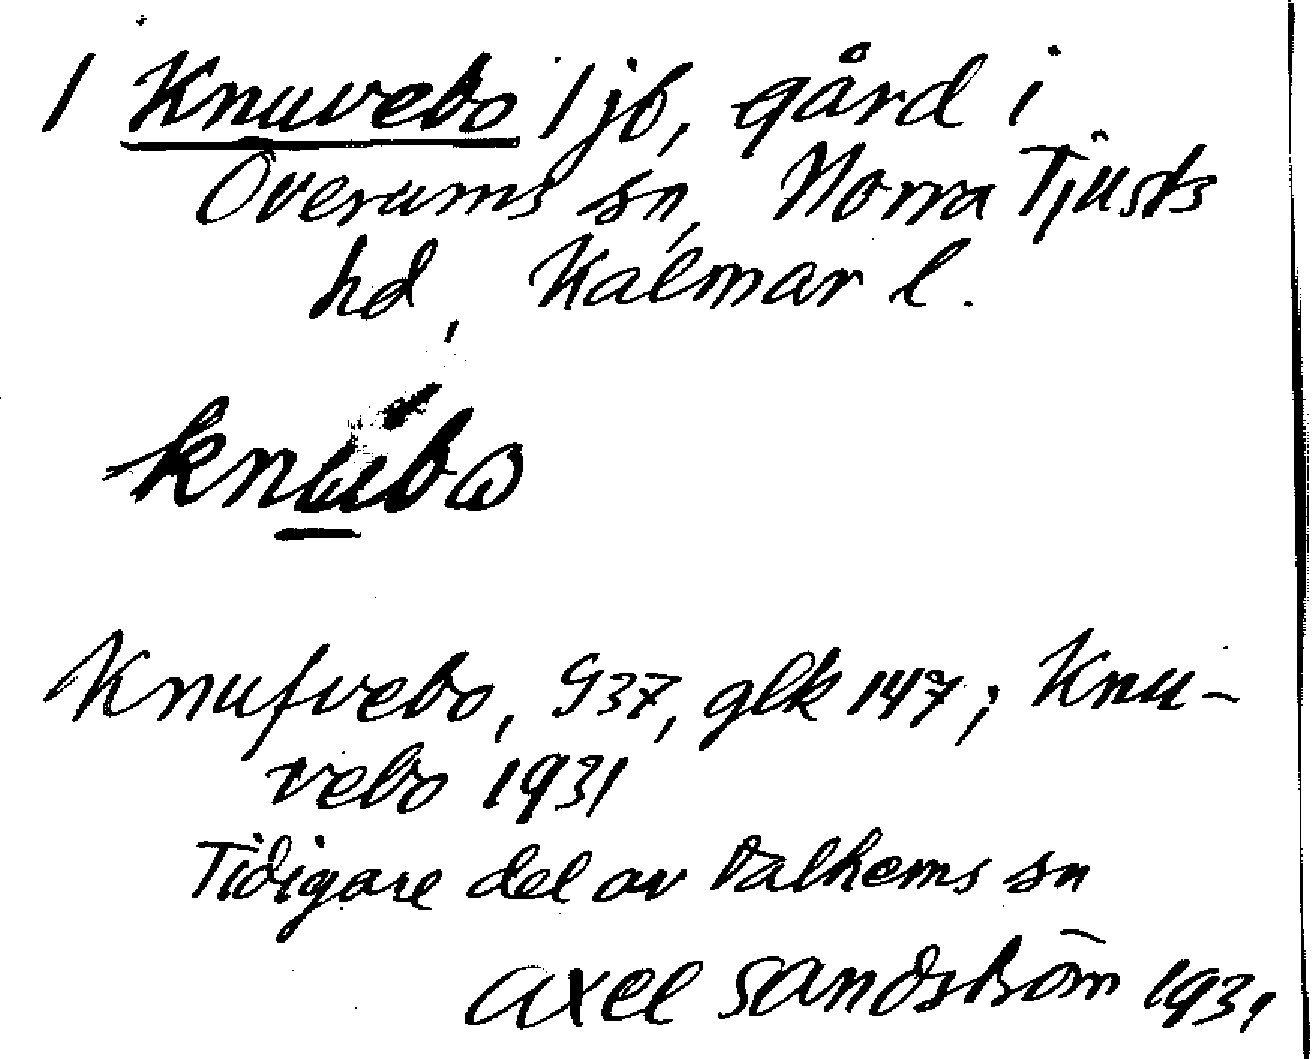 1 Knuvebo 1 jb, gård i
Överums sn, Norra Tjusts
hd, Kalmar l.
knúbω
Knufvebo, G37, glk 147; Knu-
vebo 1931
Tidigare del av Dalhems sn
Axel Sandström 1931